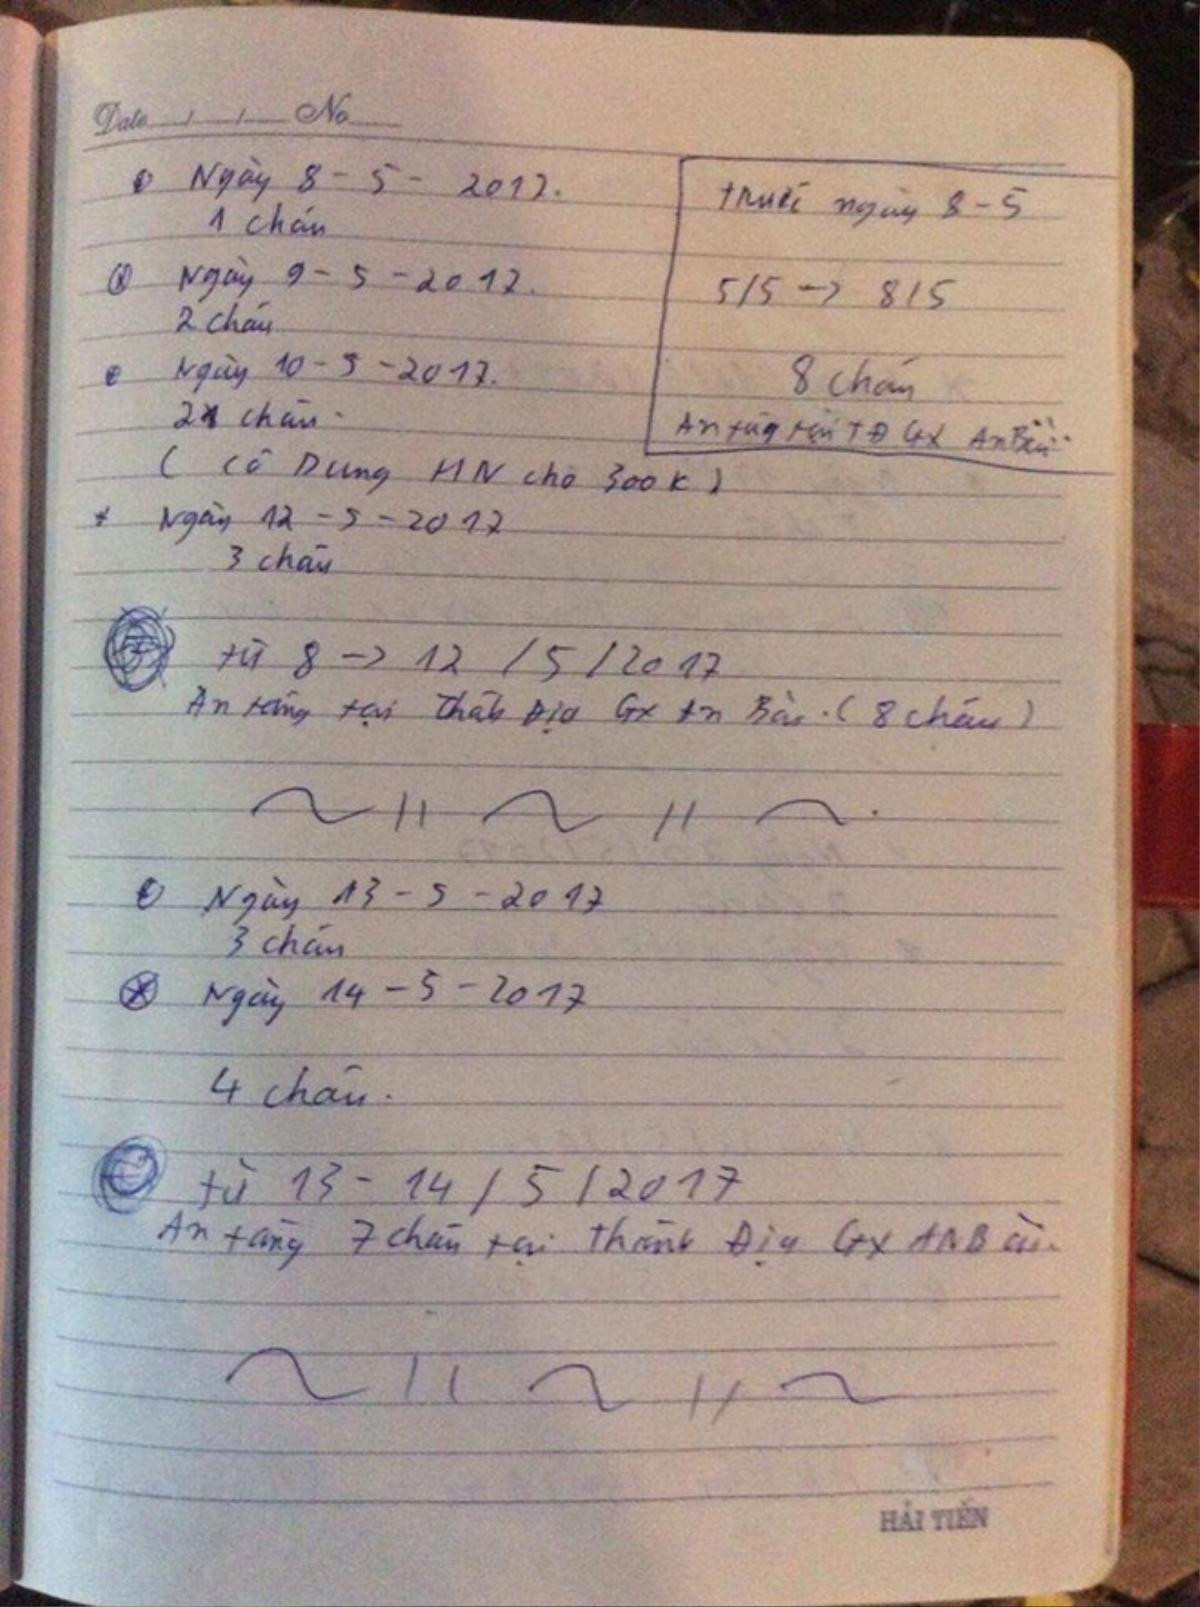 Date / / No
Ngày 8 - 5 - 2017.
1 cháu
Ngày 9 - 5 - 2017.
2 cháu
Ngày 10 - 5 - 2017.
2 cháu.
( Cô Dung HN cho 300K )
+ Ngày 12 - 5 - 2017
3 cháu
trước ngày 8 - 5
5/5 -> 8/5
8 cháu
An táng tại TĐ Gx An Bài
từ 8 -> 12 / 5 / 2017
An táng tại Thánh Địa Gx An Bài. ( 8 cháu )
Ngày 13 - 5 - 2017
3 cháu
Ngày 14 - 5 - 2017
4 cháu.
từ 13 - 14 / 5 / 2017
An táng 7 cháu tại thánh Địa Gx AN Bài.
HẢI TIẾN